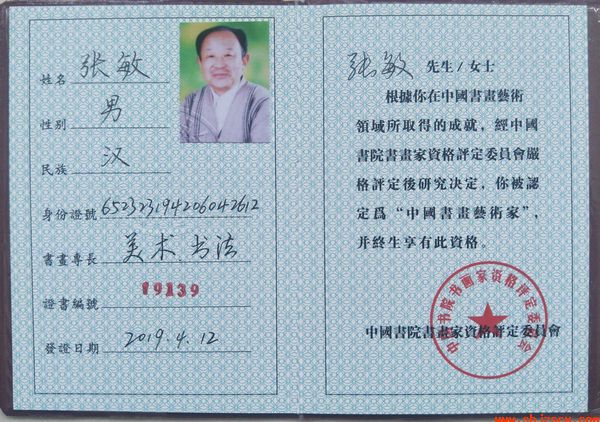 姓名 张敏
性别 男
民族 汉
身份證號 652323194206042612
書畫專長 美术.书法
證書編號 19139
發證日期 2019.4.12
张敏 先生/女士
根據你在中國書畫藝術
領域所取得的成就，經中國
書院書畫家資格評定委員會嚴
格評定後研究決定，你被認
定爲“中國書畫藝術家”，
并終生享有此資格。
中国书院书画家资格评定委员会
中國書院書畫家資格評定委員會